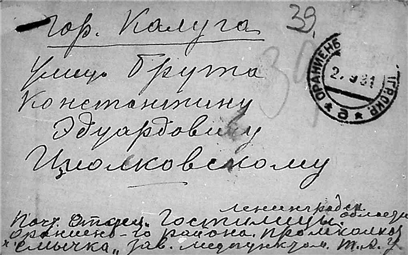 гор. Калуга
39.
улиц. Брута
Константину
Эдуардовичу
Циолковскому
ОРАНИЕНБ
2.9.31
Ленинградск.
Почт. Отдел. Гостилицы области
Ораниен-го района. Промколхоз
"Смычка" зав. медпунктом.